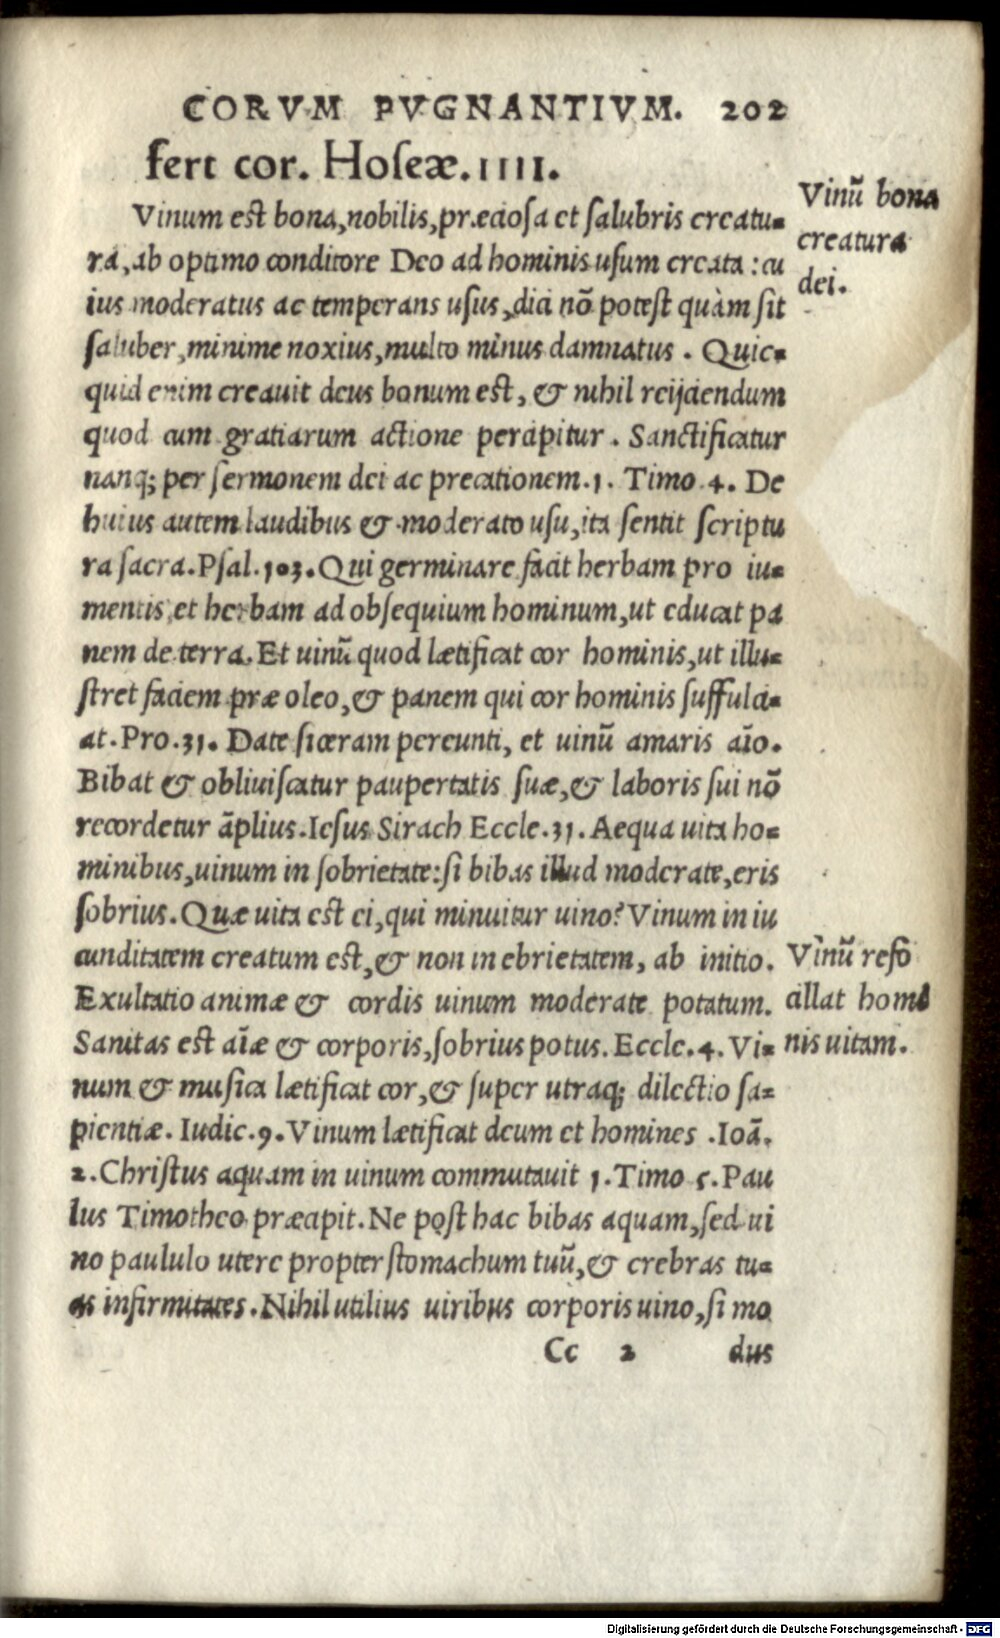 CORVM PVGNANTIVM. 202
fert cor. Hoſeæ. IIII.
Vinum est bona, nobilis, præciosa et ſalubris creatu-
ra, ab optimo conditore Deo ad hominis uſum creata: cu
ius moderatus ac temperans uſus, dici nõ potest quàm ſit
ſaluber, minime noxius, multo minus damnatus. Quic-
quid enim creauit deus bonum est, & nihil reijciendum
quod cum gratiarum actione percipitur. Sanctificatur
nanq; per ſermonem dei ac precationem. 1. Timo. 4. De
huius autem laudibus & moderato uſu, ita ſentit ſcriptu
ra ſacra. Pſal. 103. Qui germinare facit herbam pro iu-
mentis, et herbam ad obſequium hominum, ut educat pa
nem de terra. Et uinũ quod lætificat cor hominis, ut illu-
ſtret faciem præ oleo, & panem qui cor hominis ſuffulci-
at. Pro. 31. Date ſiceram pereunti, et uinũ amaris aĩo.
Bibat & obliuiſcatur paupertatis ſuæ, & laboris ſui nõ
recordetur ãplius. Ieſus Sirach Eccle. 31. Aequa uita ho-
minibus, uinum in ſobrietate: ſi bibas illud moderate, eris
ſobrius. Quæ uita est ei, qui minuitur uino? Vinum in iu
cunditatem creatum est, & non in ebrietatem, ab initio.
Exultatio animæ & cordis uinum moderate potatum.
Sanitas est aĩæ & corporis, ſobrius potus. Eccle. 4. Vi-
num & muſica lætificat cor, & ſuper utraq; dilectio ſa-
pientiæ. Iudic. 9. Vinum lætificat deum et homines. Ioã.
2. Chriſtus aquam in uinum commutauit 1. Timo 5. Pau
lus Timotheo præcipit. Ne poſt hac bibas aquam, ſed ui
no paululo utere propter ſtomachum tuũ, & crebras tu-
as infirmitates. Nihil utilius uiribus corporis uino, ſi mo
Cc 2 dus
Vinũ bona
creatura
dei.
Vinũ refo
cillat homi
nis uitam.
Digitalisierung gefördert durch die Deutsche Forschungsgemeinschaft - DFG